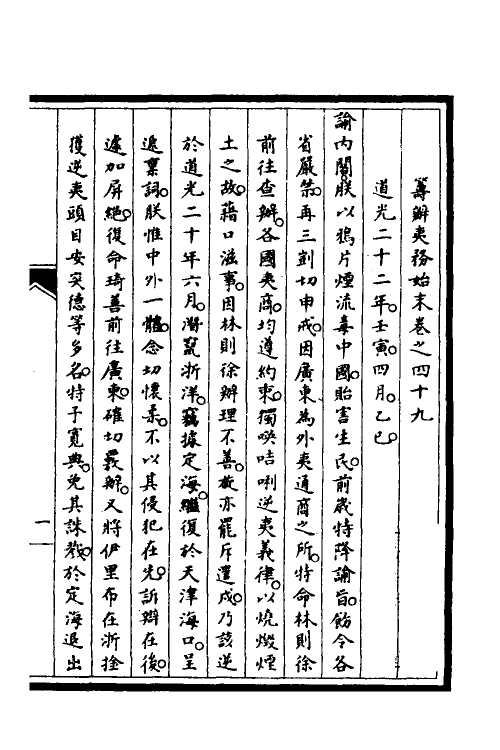 籌辦夷務始末卷之四十九
道光二十二年。壬寅。四月。乙巳。
諭內閣。朕以鴉片煙流毒中國。貽害生民。前歲特降諭旨。飭令各
省嚴禁。再三剴切申戒。因廣東、為外夷通商之所。特命林則徐
前往查辦。各國夷商。均遵約束。獨𠸄咭唎逆夷義律。以燒燬煙
土之故。藉口滋事。因林則徐辦理不善。故亦罷斥遣戍。乃該逆
於道光二十年六月。潛竄浙洋。竊據定海。繼復於天津海口。呈
遞稟詞。朕惟中外一體。念切懷柔。不以其侵犯在先。訴辯在後。
遽加屏絕。復命琦善前往廣東。確切嚴辦。又將伊里布在浙拴
獲逆夷頭目安突德等多名。特予寬典。免其誅戮。於定海退出
二